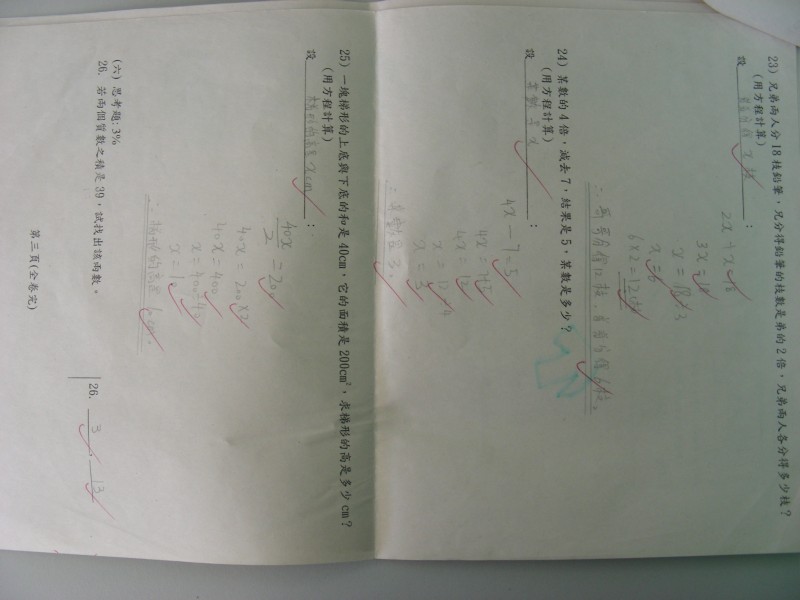 23) 兄弟兩人分18枝鉛筆，兄分得鉛筆的枝數是弟的2倍，兄弟兩人各分得多少枝？
(用方程計算)
設 :
2x + x = 18
3x = 18
x = 18÷3
x = 6
6×2=12
24) 某數的4倍，減去7，結果是5，某數是多少？
(用方程計算)
設 某數是x :
4x − 7 = 5
4x = 7+5
4x = 12
x = 12÷4
x = 3
∴某數是3。
25) 一塊梯形的上底與下底的和是40cm，它的面積是200cm²，求梯形的高是多少cm？
(用方程計算)
設 梯形的高是xcm :
40x/2 = 200
40x = 200×2
40x = 400
x = 400÷40
x = 10
(六) 思考題: 3%
26. 若兩個質數之積是39，試找出該兩數。
26. 3 , 13
第三頁(全卷完)